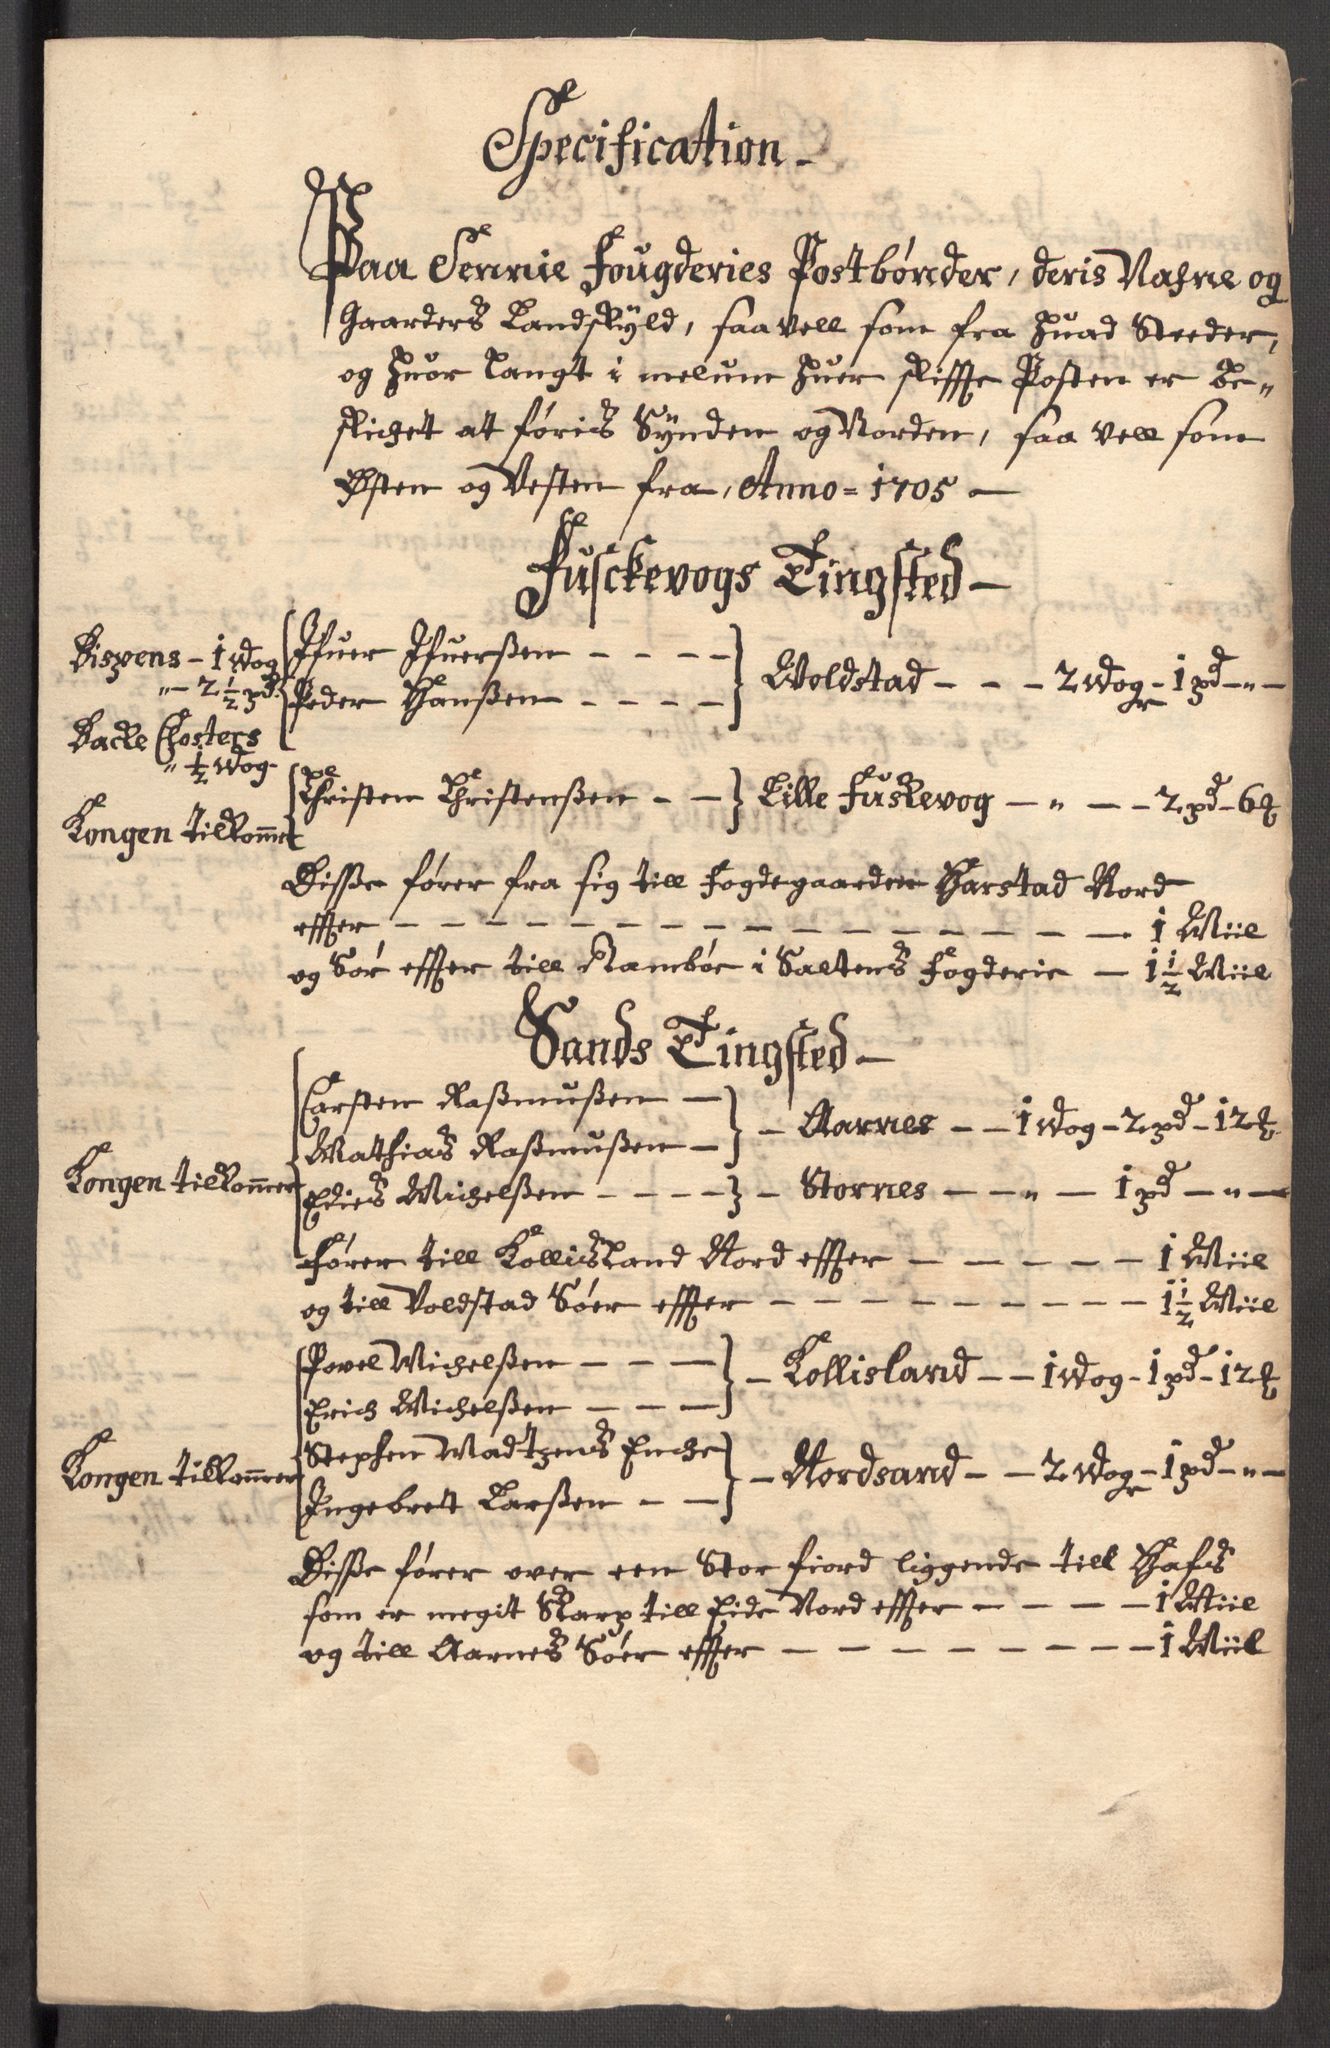 Specification
Paa Sennie Fougderies Postbønder, deris Nafne og
Gaarders Landskyld, saavell som fra huad Steeder,
og huor langt i melum huer skiffte Posten er be„
skichet at føris Synden og Norden, saa vell som
Østen og Vesten fra, Anno = 1705 —
Fusckevogs Tingsted —
Bispens - 1 wog
„ - 2 1/2 pd.
Backe Closters
„ 1/2 wog.
Ifuer Ifuerßen - - - -
Peder Hanßen - - - -
Woldstad - - - 2 wogr - 1 pd - „ -
Kongen tilkommer
Christen Christenßen - - Lille Fuskevog - „ - - 2 pd - 6 ℔
Disse fører fra sig till Fogdegaarden Harstad Nord
effter - - - - - - - - - - 1 Miil
og Sør effter till Rambøe i Saltens Fogderie - 1 1/2 Miil
Sands Tingsted —
Kongen tilkommer
Carsten Raßmußen -
Mathias Raßmußen -
- Aarnes - - 1 wog - 2 pd - 12 ℔.
Edies Michelßen - - - - - Stornes - - „ - 1 pd - „ -
Fører till Kollisland Nord effter - - - - - 1 Miil
og till Voldstad Søer effter - - - - - - - - 1 1/2 Miil
Povel Michelßen - - -
Erich Michelßen - - -
- Kollisland - - 1 wog - 1 pd - 12 ℔
Kongen tilkommer
Stephen Madtzens Enche
Ingebrett Larßen - -
- Nordsand - - 2 wogr - 1 pd - „ -
Disse fører over een Stor fiord liggende till Hafs
som er megit Skarp till Eide Nord effter - - - - 1 Miil
og till Aarnes Søer effter - - - - - - - - 1 Miil